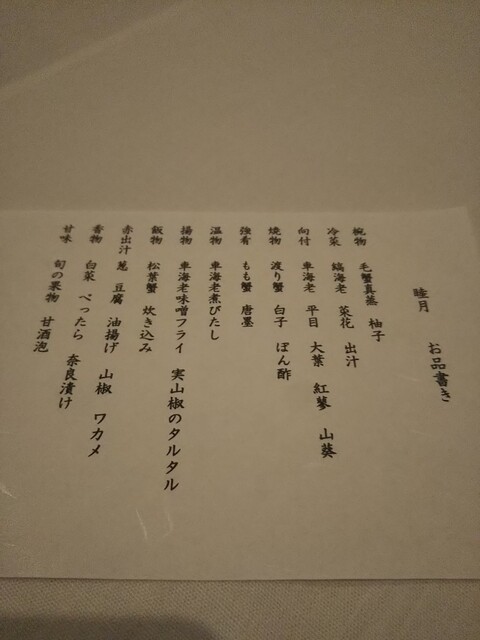 睦月　お品書き
椀物　毛蟹真蒸　柚子
冷菜　縞海老　菜花　出汁
向付　車海老　平目　大葉　紅蓼　山葵
焼物　渡り蟹　白子　ぽん酢
強肴　もも蟹　唐墨
温物　車海老煮びたし
揚物　車海老味噌フライ　実山椒のタルタル
飯物　松葉蟹　炊き込み
赤出汁　葱　豆腐　油揚げ　山椒　ワカメ
香物　白菜　べったら　奈良漬け
甘味　旬の果物　甘酒泡